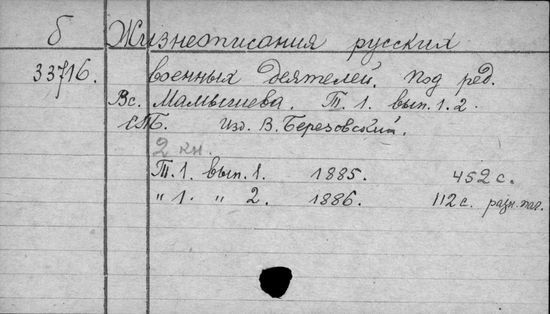 б Жизнеописания русских
33716. военных деятелей. Под ред.
Вс. Мамышева. Т. 1. вып. 1. 2.
СПБ. Изд. В. Березовский.
2 кн.
Т. 1. вып. 1. 1885. 452 с.
„ 1. „ 2. 1886. 112 с. разн. паг.